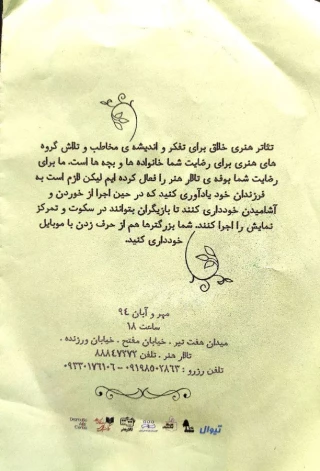 تئاتر هنری خلاق برای تفکر و اندیشه ی مخاطب و تلاش گروه
های هنری برای رضایت شما خانواده ها و بچه ها است. ما برای
رضایت شما بوفه ی تالار هنر را فعال کرده ایم لیکن لازم است به
فرزندان خود یادآوری کنید که در حین اجرا از خوردن و
آشامیدن خودداری کنند تا بازیگران بتوانند در سکوت و تمرکز
نمایش را اجرا کنند. شما بزرگترها هم از حرف زدن با موبایل
خودداری کنید.
مهر و آبان ۹۴
ساعت ۱۸
میدان هفت تیر. خیابان مفتح. خیابان ورزنده.
تالار هنر. تلفن ۸۸۸۴۷۲۷۲
تلفن رزرو : ۰۹۱۹۸۵۰۲۸۶۳ - ۰۹۳۳۰۱۷۶۱۰۶
تیوال